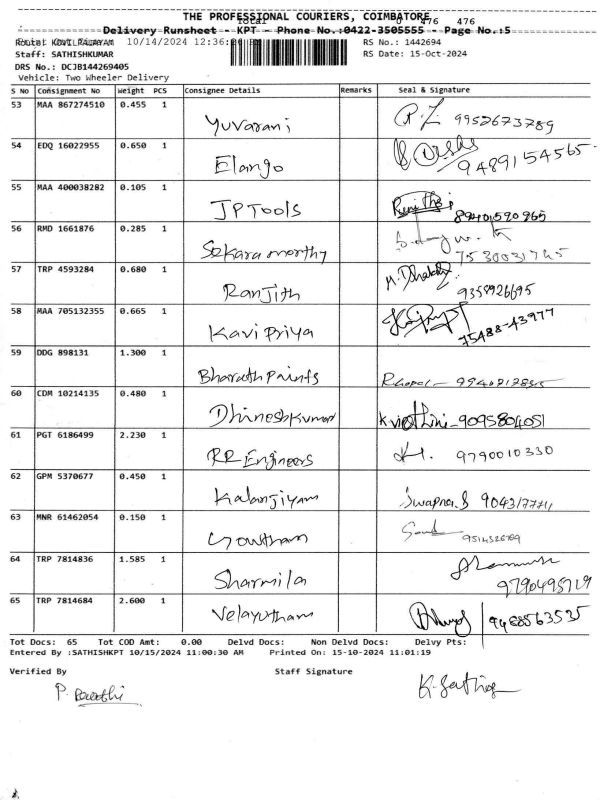 THE PROFESSIONAL COURIERS, COIMBATORE
Total 0 476 476
Delivery Runsheet - KPT - Phone No.:0422-3505555 - Page No.:5
Route: KOVILPALAYAM 10/14/2024 12:36:
RS No.: 1442694
Staff: SATHISHKUMAR
RS Date: 15-Oct-2024
DRS No.: DCJB144269405
Vehicle: Two Wheeler Delivery
S No Consignment No Weight PCS Consignee Details Remarks Seal & Signature
53 MAA 867274510 0.455 1 Yuvarani 9952673789
54 EDQ 16022955 0.650 1 Elango 9489154565
55 MAA 400038282 0.105 1 JPTools
56 RMD 1661876 0.285 1 Sekaramoorthy
57 TRP 4593284 0.680 1 Ranjith 9358926695
58 MAA 705132355 0.665 1 KaviPriya 75488-43977
59 DDG 898131 1.300 1 Bharath Paints
60 CDM 10214135 0.480 1 DhineshKumar 9095804051
61 PGT 6186499 2.230 1 RR Engineers 9790010330
62 GPM 5370677 0.450 1 Kalanjiyam Swapna.S
63 MNR 61462054 0.150 1 Gowtham
64 TRP 7814836 1.585 1 Sharmila
65 TRP 7814684 2.600 1 Velayutham 9488563535
Tot Docs: 65 Tot COD Amt: 0.00 Delvd Docs: Non Delvd Docs: Delvy Pts:
Entered By :SATHISHKPT 10/15/2024 11:00:30 AM Printed On: 15-10-2024 11:01:19
Verified By Staff Signature